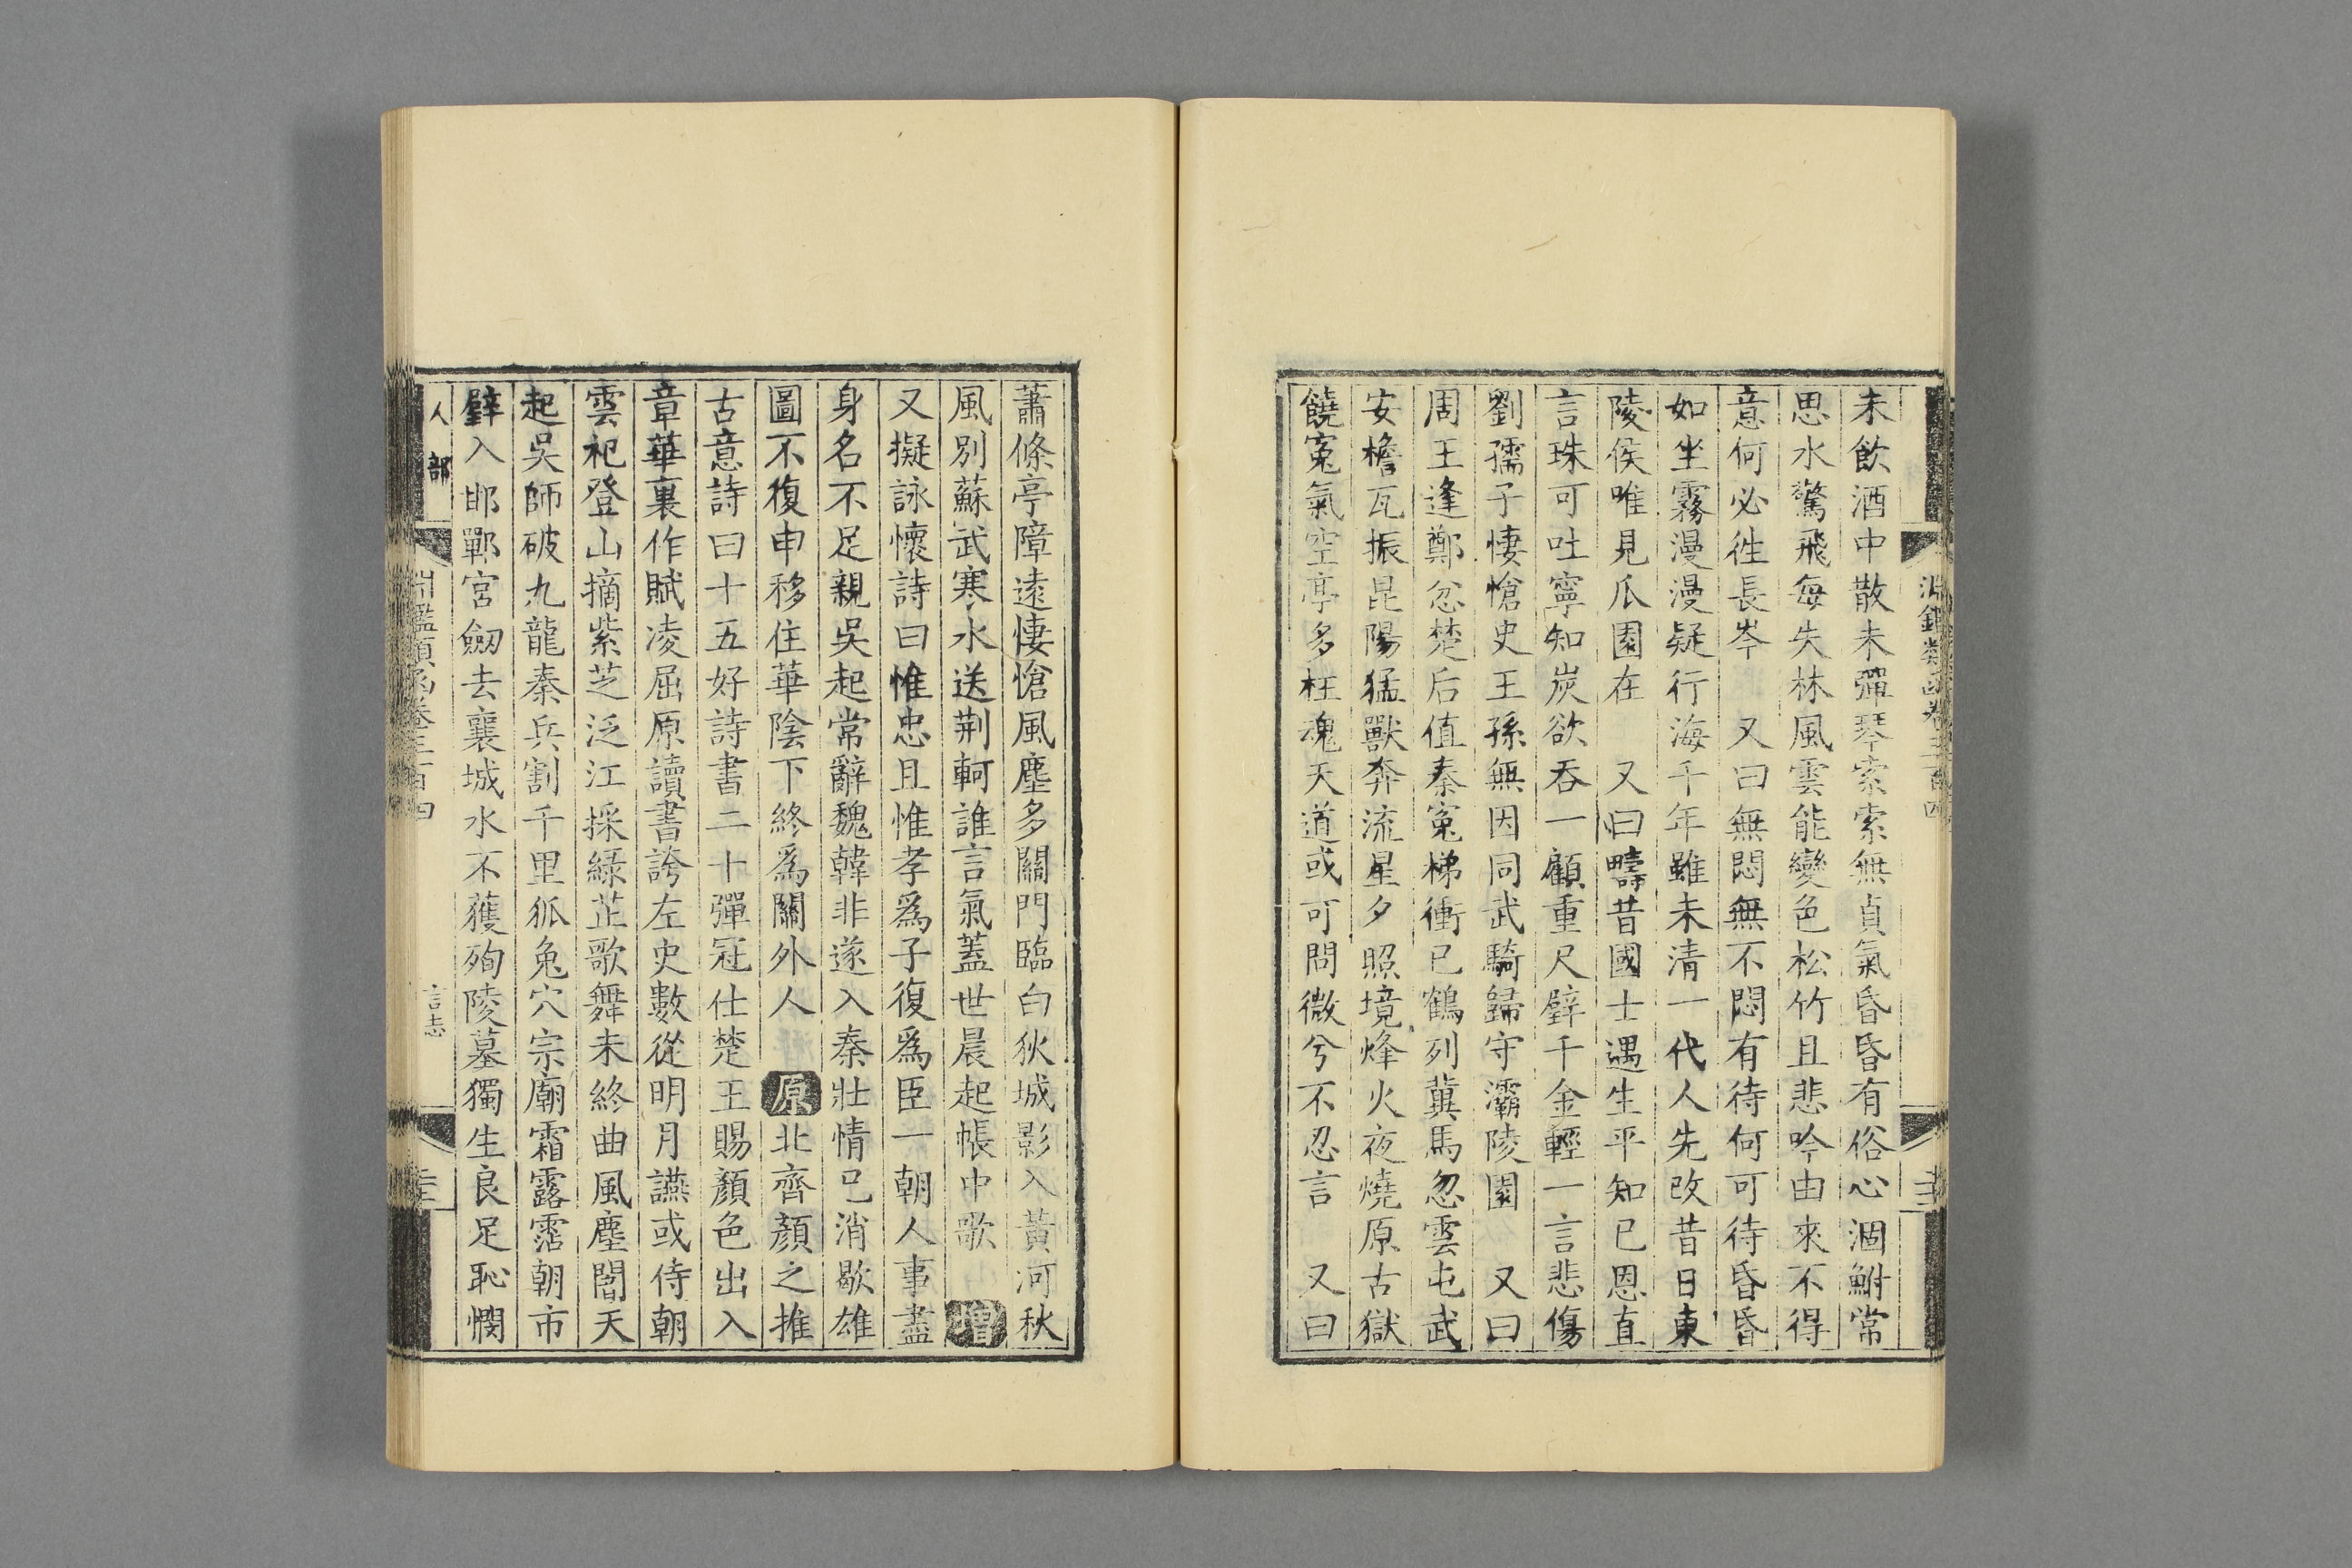 未飲酒中散未彈琴索索無貞氣昏昏有俗心涸鮒常
思水驚飛每失林風雲能變色松竹且悲吟由來不得
意何必徃長岑 又曰無悶無不悶有待何可待昏昏
如坐霧漫漫疑行海千年雖未清一代人先改昔日東
陵侯唯見瓜園在 又曰疇昔國士遇生平知已恩直
言珠可吐寧知炭欲吞一顧重尺璧千金輕一言悲傷
劉孺子悽愴史王孫無因同武騎歸守灞陵園 又曰
周王逢鄭忿楚后值秦寃梯衝已鶴列冀馬忽雲屯武
安檐瓦振昆陽猛獸奔流星夕照境烽火夜燒原古獄
饒寃氣空亭多枉魂天道或可問微兮不忍言 又曰
蕭條亭障遠悽愴風塵多關門臨白狄城影入黃河秋
風別蘇武寒水送荆軻誰言氣蓋世晨起帳中歌 增
又擬詠懷詩曰惟忠且惟孝爲子復爲臣一朝人事盡
身名不足親吳起常辭魏韓非遂入秦壯情已消歇雄
圖不復申移住華陰下終爲關外人 原 北齊顏之推
古意詩曰十五好詩書二十彈冠仕楚王賜顏色出入
章華裏作賦凌屈原讀書誇左史數從明月讌或侍朝
雲祀登山摘紫芝泛江採綠芷歌舞未終曲風塵闇天
起吳師破九龍秦兵割千里狐兔穴宗廟霜露霑朝市
璧入邯鄲宮劒去襄城水不獲殉陵墓獨生良足恥憫
人部 淵鑑類函卷三百四 言志